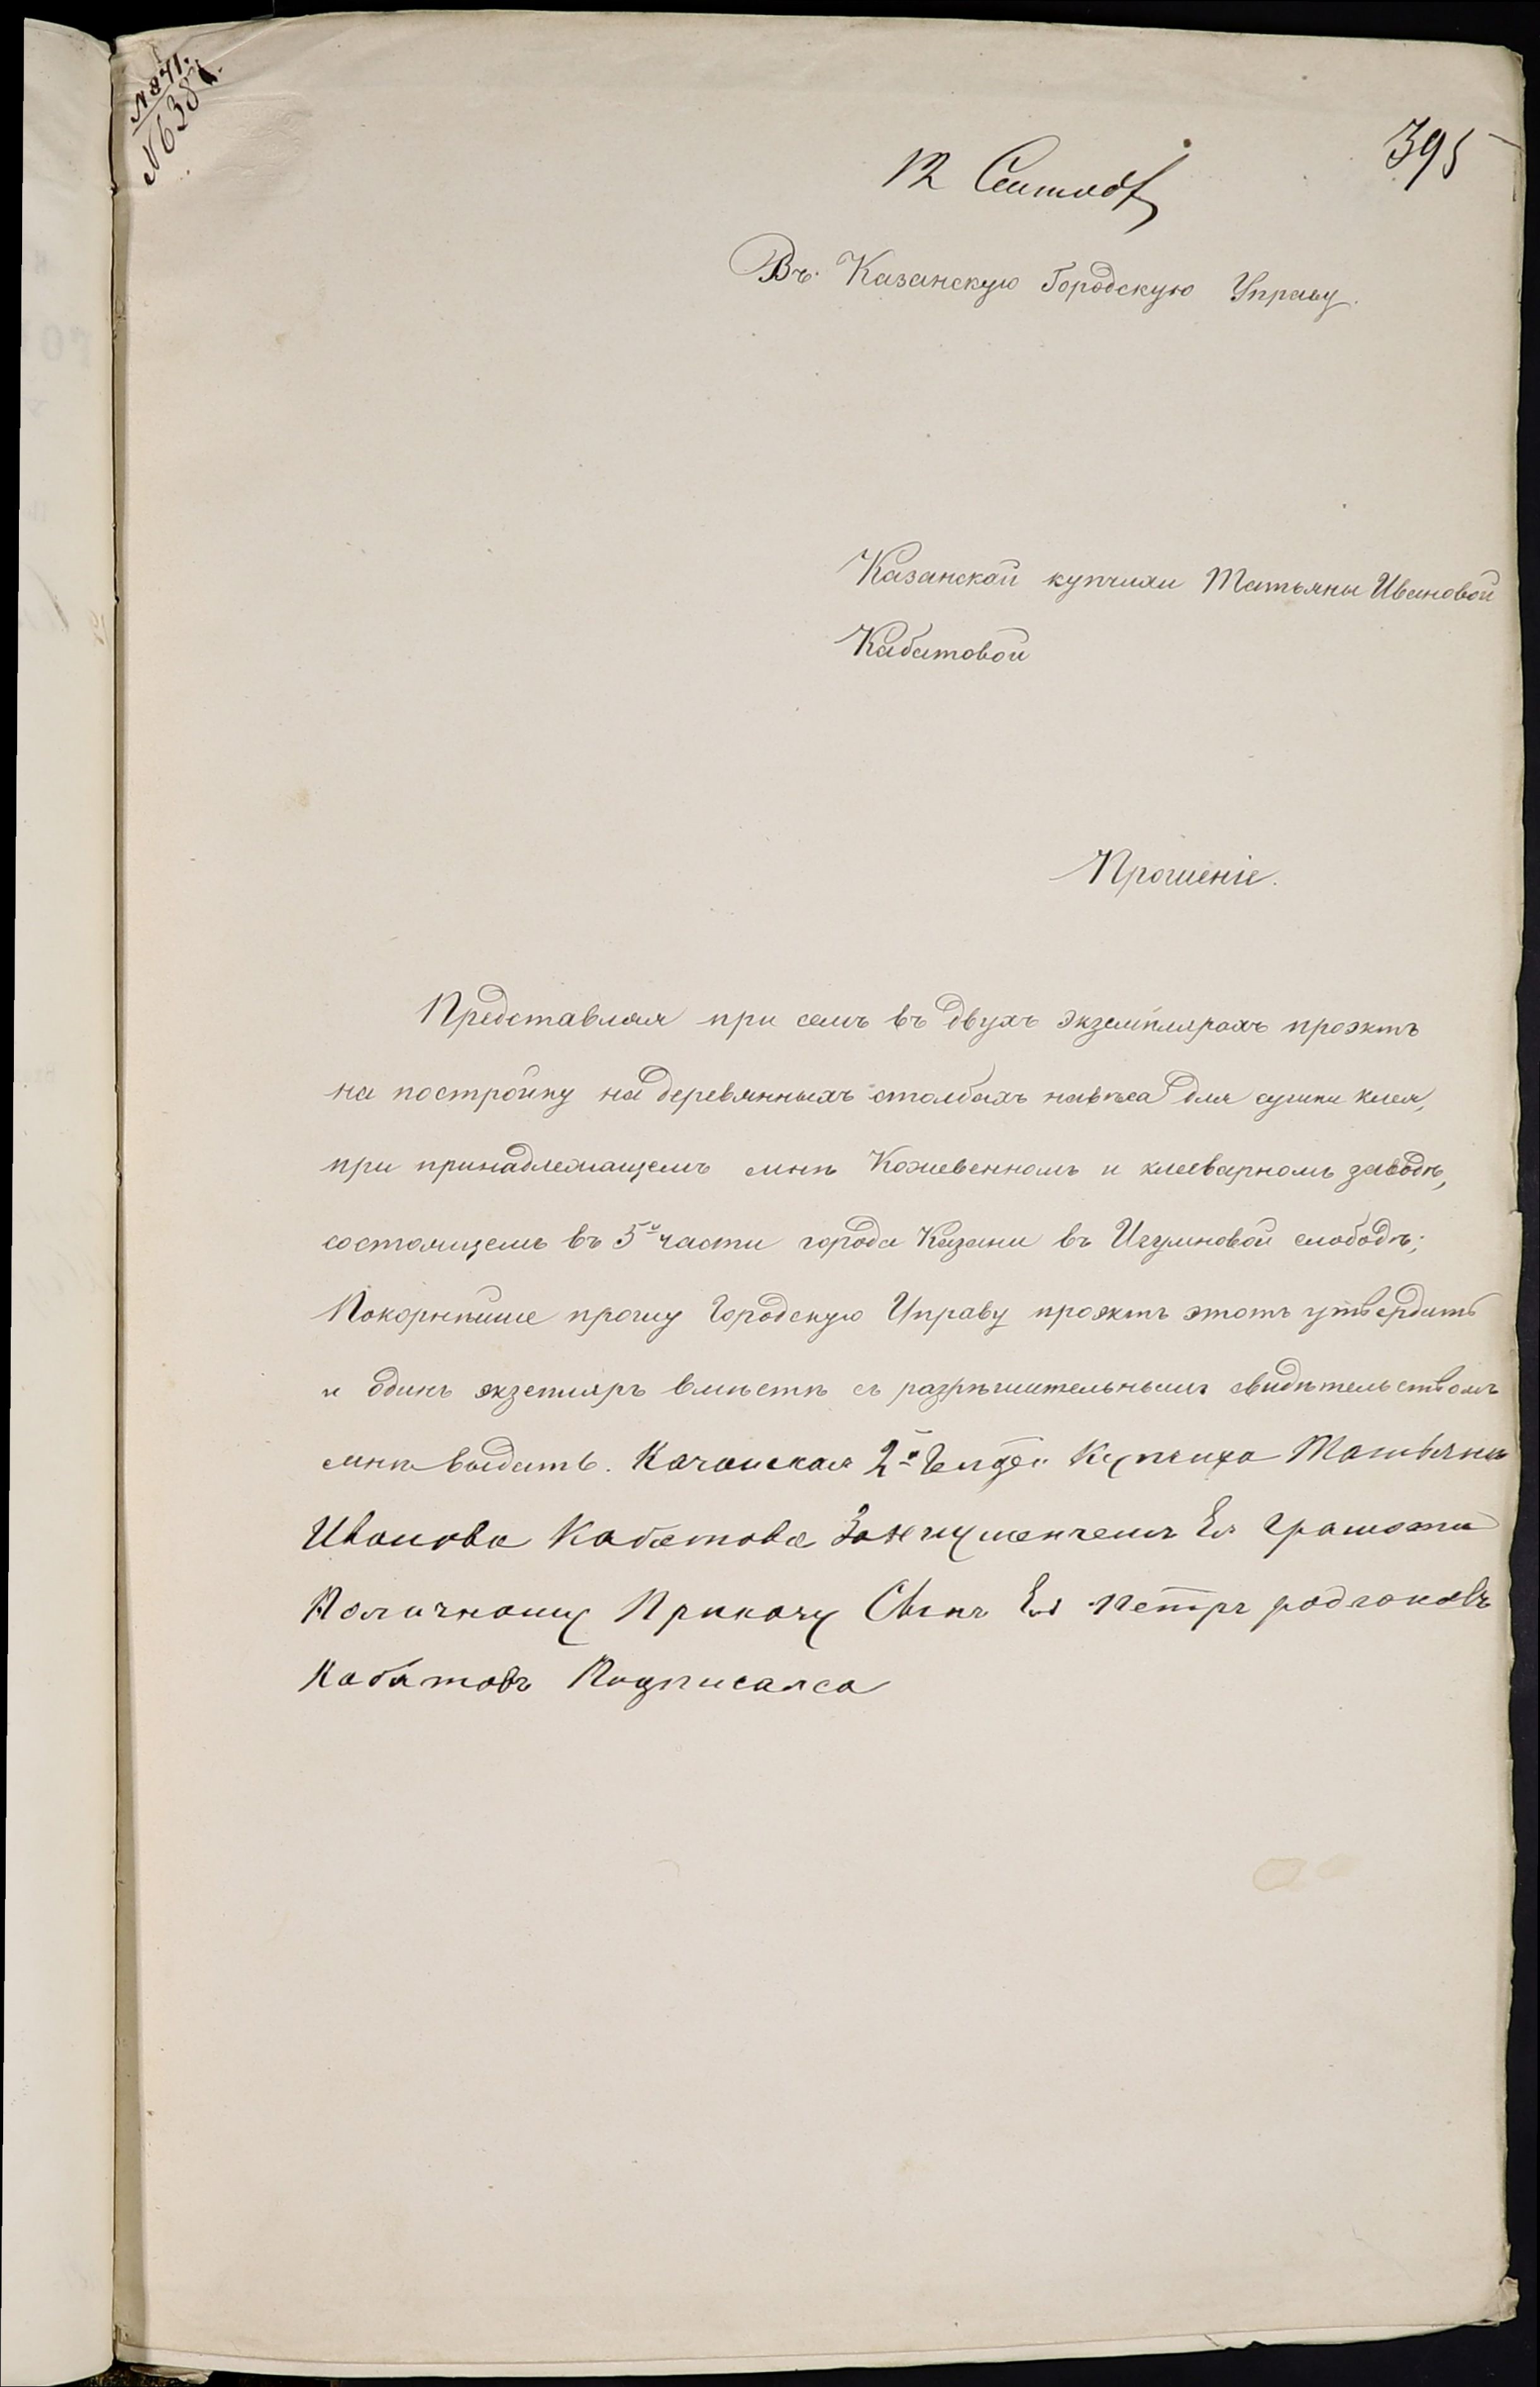 № 871.
№ 6387.
395
12 Сентяб
Въ Казанскую Городскую Управу.
Казанской купчихи Татьяны Ивановой
Кабатовой
Прошеніе.
Представляя при семъ въ двухъ экземплярахъ проэктъ
на постройку на деревянныхъ столбахъ навѣса для сушки клея,
при принадлежащемъ мнѣ Кожевенномъ и клееварномъ заводѣ,
состоящемъ въ 5й части города Казани въ Игумновой слободѣ;
Покорнѣйше прошу Городскую Управу проэктъ этотъ утвердить
и одинъ экземпляръ вмѣстѣ съ разрѣшительнымъ свидѣтельствомъ
мнѣ выдать. Казанская 2й Гилдеи Купчиха Татьяна
Иванова Кабатова Ея Грамоти
По личному Приказу Сынъ Ея Петръ родионовъ
Кабатовъ Подписался